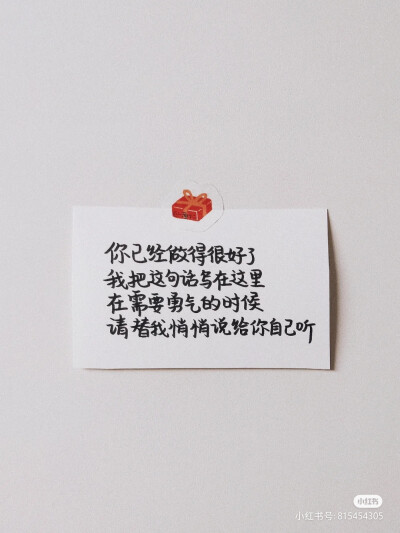 你已经做得很好了
我把这句话写在这里
在需要勇气的时候
请替我悄悄说给你自己听
小红书
小红书号:815454305